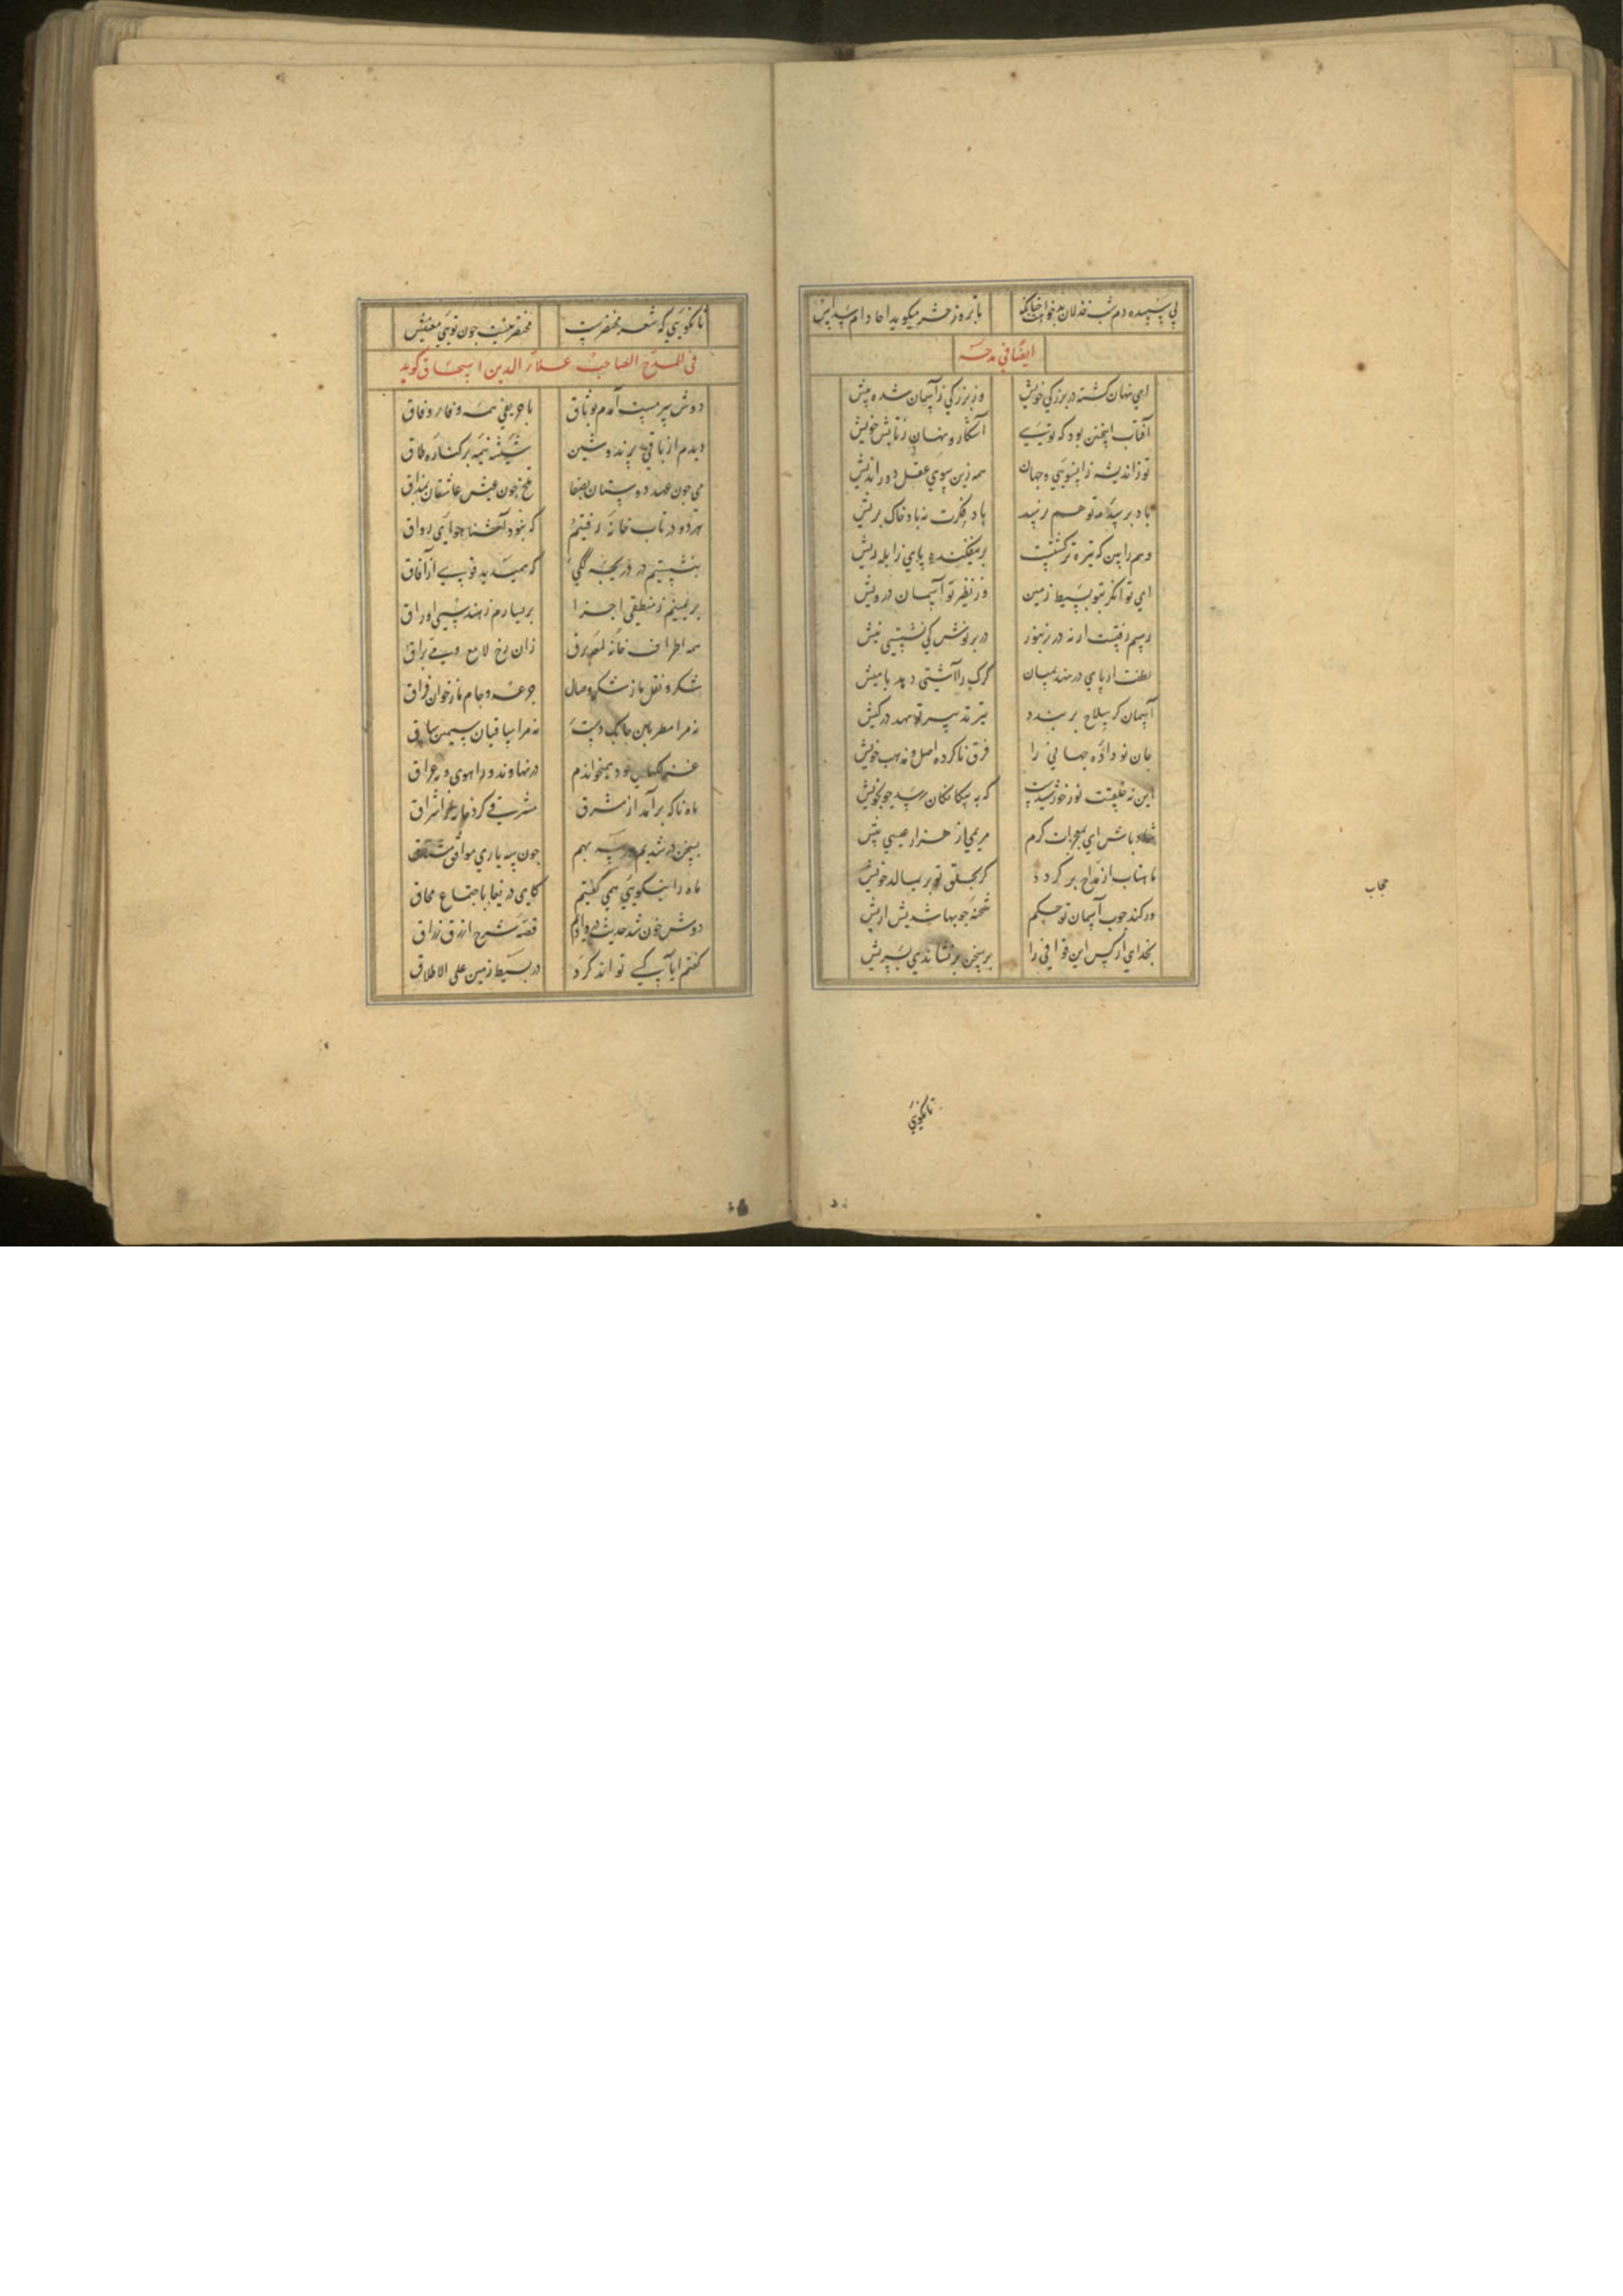 پی سپیده دم شب خذلان بدخواهت چنانک تا بروز حشر میگوید احاد ام سداس
ایضا فی مدحه
ای نهان کشته در بزرکی خویش وز بزرکی ز آسمان شده پیش
آفتاب اینچنین بود که تویی آشکار و نهان ز تابش خویش
تو ز اندیشه زانسویی و جهان همه زین سوی عقل دور اندیش
باد بر سده تو هم نرسد باد فکرت نه باد خاک پریش
وهم را بین که تیره تر کشتست بر میفکنده پای ز ابله ریش
ای توانکر بتو بسیط زمین وز نظیر تو آسمان درویش
رسم رفتیست ار نه در زنبور در بر نوش کی نشستی نیش
لطفت ار پای در نهد بمیان کرک را آشتی دهد با میش
آسمان کر سلاح بر بندد تیر تدبیر تو نهد در کیش
جان تو داده جهانی را فرق ناکرده اصل و مذهب خویش
این نه خلقتت نور خورشیدست که به بیکانکان رسد چو بخویش
شاد باش ای بمعجزات کرم مریمی از هزار عیسی بیش
ماهتاب از مزاج بر کردد کر بحلق تو بر بمالد خویش
ور کند چوب آسمان تو حکم شحنه چوبها شدیش اریش
بخدای ار کس این قوافی را بر سخن بر نشاندی بسریش
تا نکویی
حجاب
تا نکویی که شعر مختصرست مختصر نیست چون تویی معنیش
فی المدح الصاحب علاء الدین اسحاق کوید
دوش سر مست آمدم بوثاق با حریفی همه وفا و وفاق
دیدم از باقی پرندوشین شیشه نیمه بر کناره طاق
می چون عهد دوستان بصفا تلخ چون عیش عاشقان بمذاق
هر دو در تاب خانه رفتیم که نبود آشنا هوای رواق
بنشستیم در دریچه لکی که همی دید قوسی از آفاق
بر یمینم ز منطقی اجزا بر یسارم ز هندسی اوراق
همه اطراف خانه لمعه برق زان رخ لامع و می براق
شکر و نقل ما ز شکر وصال جرعه و جام ما ز خوان فراق
نه مرا مطربان چابک دست نه مرا ساقیان سیمین ساق
غزلکهای خود همیخواندم در نهاوند و راهوی و عراق
ماه ناکه برآمد از مشرق مشرقی کرد خانه از اشراق
بسخن در شدیم هر سه بهم چون سه یاری موافق مشتاق
ماه را نیکویی همی کفتیم کای دریغا باجتماع محاق
دوش خون شد حدیث در دادم قصه شرح ازرق زراق
کفتم ایا کسی تواند کرد در بسیط زمین علی الاطلاق